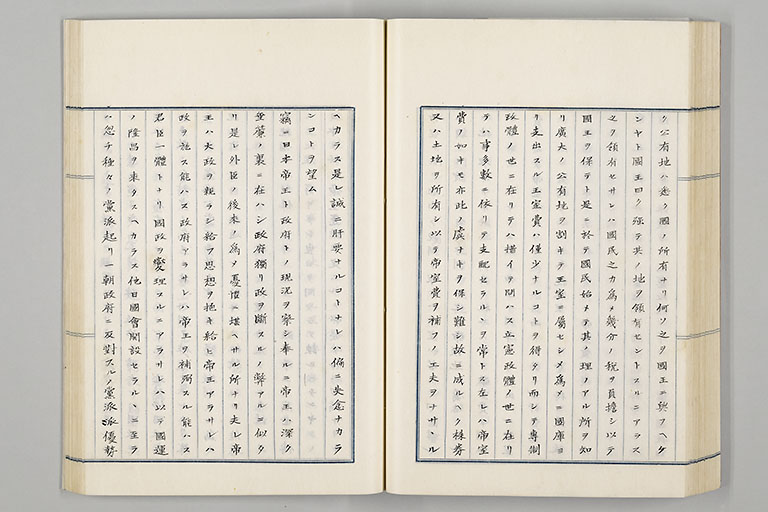 ク公有地ハ悉ク國ノ所有ナリ何ソ之ヲ國王ニ與フヘケ
ンヤト國王曰ク強テ其ノ地ヲ領有セントスルニアラス
之ヲ領有セサレハ國民之カ為メ幾分ノ税ヲ負擔シ以テ
國王ヲ保テト是ニ於テ國民始メテ其ノ理ノアル所ヲ知
リ廣大ノ公有地ヲ割キテ王室ニ屬セシメ為メニ國庫ヨ
リ支出スル王室費ハ僅少ナルコトヲ得タリ而シテ専制
政體ノ世ニ在リテハ措イテ問ハス立憲政體ノ世ニ在リ
テハ事多數ニ依リテ支配セラルヽヲ常トス在レハ帝室
費ノ如キモ亦此ノ虞ナキヲ保シ難シ故ニ成ルヘク株券
又ハ土地ヲ所有シ以テ帝室費ヲ補フノ工夫ヲナサヽル
ヘカラス是レ誠ニ肝要ナルコトナレハ偏ニ失念ナカラ
ンコトヲ望ム
竊ニ日本帝王ト政府トノ現況ヲ察シ奉ルニ帝王ハ深ク
垂簾ノ裏ニ在ハシ政府獨リ政ヲ斷スルノ弊アルニ似タ
リ是レ外臣ノ後来ノ為メ憂惧ニ堪ヘサル所ナリ夫レ帝
王ハ大政ヲ親ラシ給フ思想ヲ抱キ給ヒ帝王アラサレハ
政ヲ施ス能ハス政府アラサレハ帝王ヲ補弼スル能ハス
君臣一體トナリ國政ヲ變理スルニアラサレハ以テ國運
ノ隆昌ヲ来タスヘカラス他日國會開設セラルヽニ至ラ
ハ忽チ種々ノ黨派起リ一朝政府ニ反對スルノ黨派派優勢